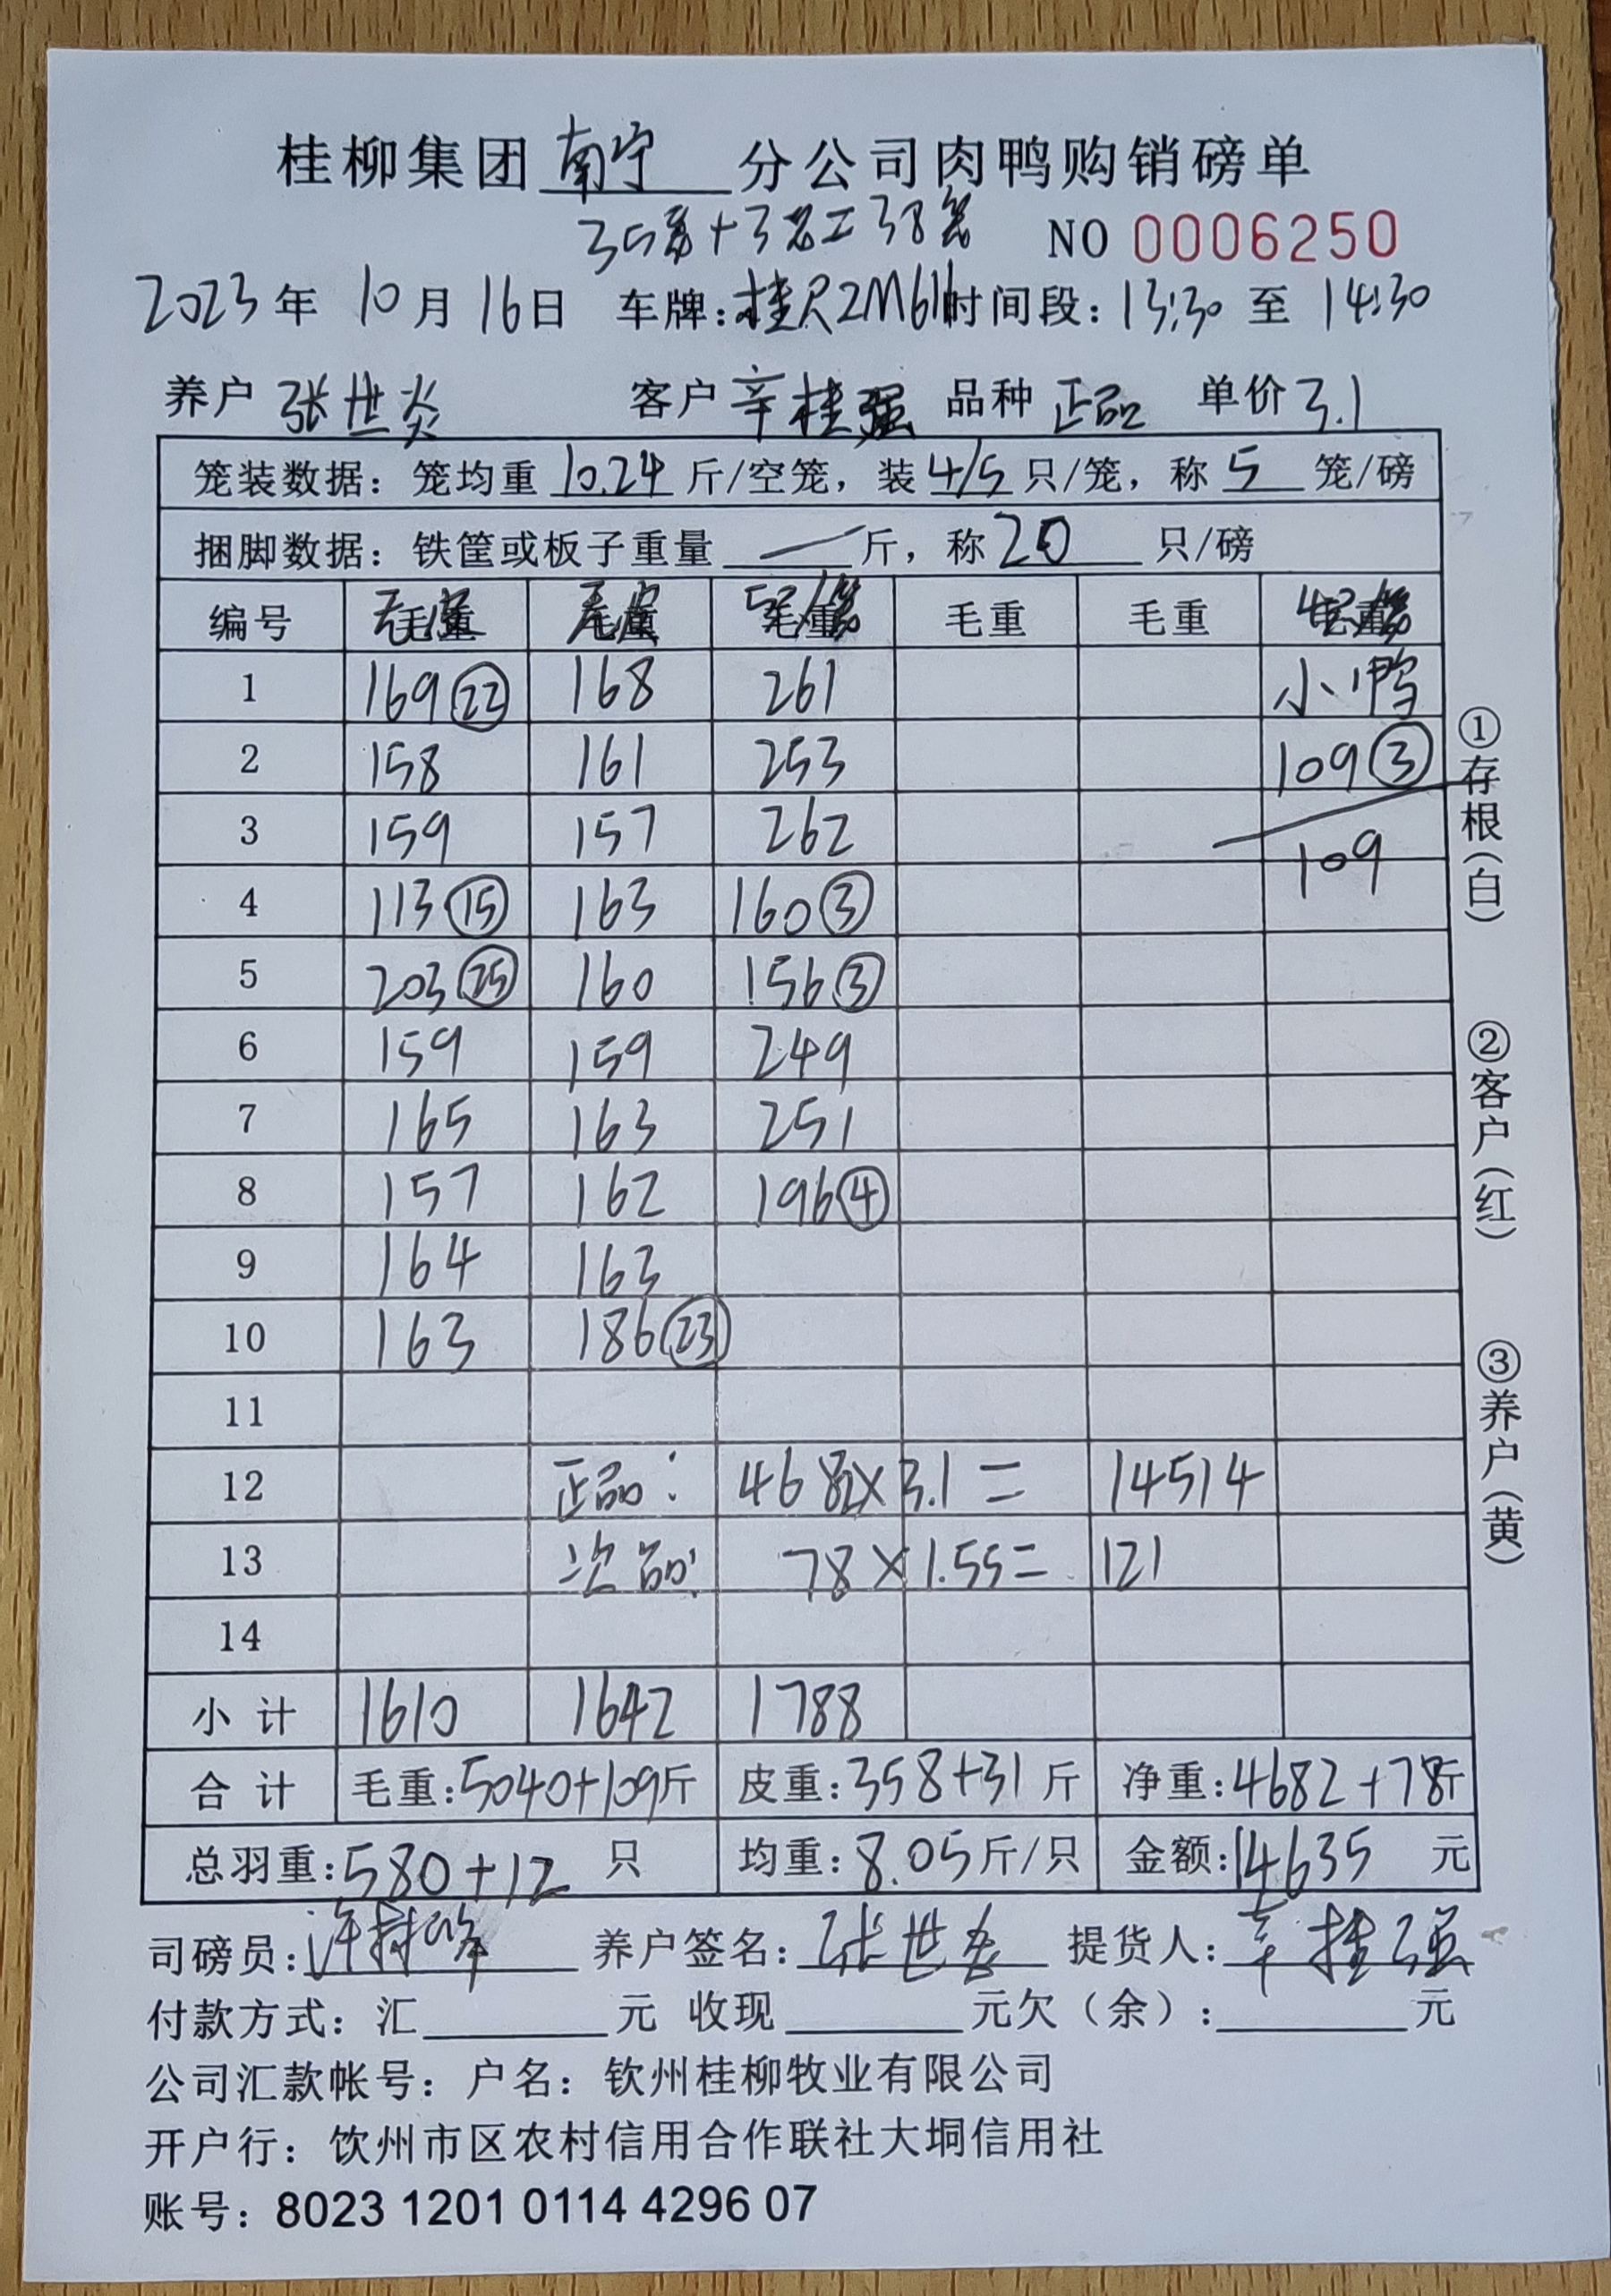 桂柳集团南宁分公司肉鸭购销磅单
35笼+3笼=38笼 NO 0006250
2023年 10月 16日 车牌:桂R2M616 时间段:13:30 至 14:30
养户 张世炎 客户 辛桂强 品种 正品 单价 3.1
笼装数据:笼均重 10.24 斤/空笼,装 4/5 只/笼,称 5 笼/磅
捆脚数据:铁筐或板子重量 — 斤,称 20 只/磅
编号 无皮 无皮 5只/笼 毛重 毛重 4只/笼
1 169㉒ 168 261 小鸭
2 158 161 253 109③
3 159 157 262 109
4 113⑮ 163 160③
5 203㉕ 160 156③
6 159 159 249
7 165 163 251
8 157 162 196④
9 164 163
10 163 186㉓
11
12 正品: 4682×3.1= 14514
13 次品: 78×1.55= 121
14
小计 1610 1642 1788
合计 毛重:5040+109斤 皮重:358+31斤 净重:4682+78斤
总羽重:580+12 只 均重:8.05斤/只 金额:14635 元
司磅员: 养户签名:张世炎 提货人:辛桂强
付款方式:汇 元 收现 元欠(余): 元
公司汇款帐号:户名:钦州桂柳牧业有限公司
开户行:饮州市区农村信用合作联社大垌信用社
账号:8023 1201 0114 4296 07
①存根(白)
②客户(红)
③养户(黄)